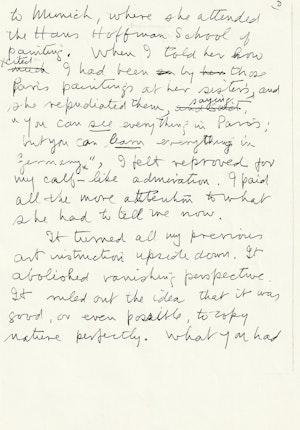 3
to Munich, where she attended
the Hans Hoffman School of
painting. When I told her how
excited
much I had been so by her those
Paris paintings at her sisters, and
she repudiated them, and said saying
"You can see everything in Paris;
but you can learn everything in
Germany", I felt reproved for
my calf-like admiration. I paid
all the more attention to what
she had to tell me now.
It turned all my previous
art instruction upside down. It
abolished vanishing perspective.
It ruled out the idea that it was
good, or even possible, to copy
nature perfectly. What you had